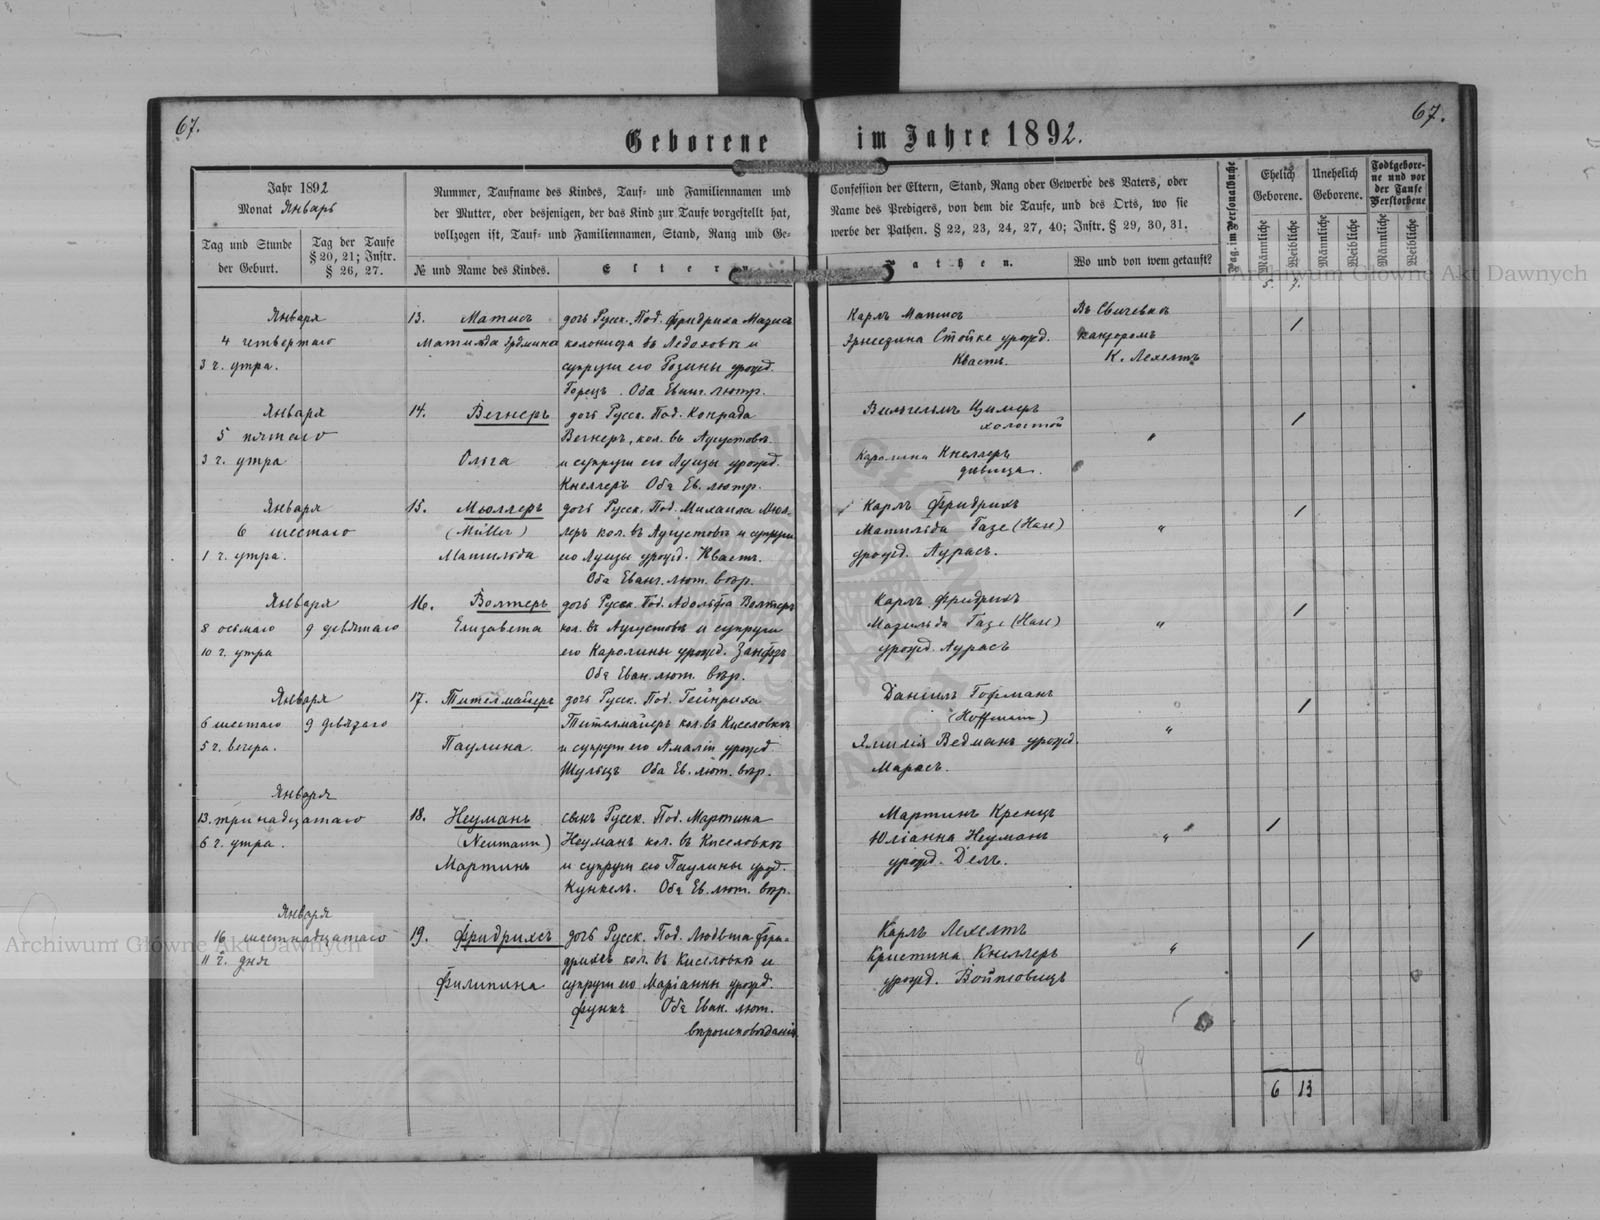 67.
67.
Geborene im Jahre 1892.
Jahr 1892
Monat Январь
Nummer, Taufname des Kindes, Tauf- und Familiennamen und
der Mutter, oder desjenigen, der das Kind zur Taufe vorgestellt hat,
vollzogen ist, Tauf- und Familiennamen, Stand, Rang und Ge-
Confession der Eltern, Stand, Rang oder Gewerbe des Vaters, oder
Name des Predigers, von dem die Taufe, und des Orts, wo sie
werbe der Pathen. § 22, 23, 24, 27, 40; Instr. § 29, 30, 31.
Tag und Stunde
der Geburt.
Tag der Taufe
§ 20, 21; Instr.
§ 26, 27.
№ und Name des Kindes.
Eltern
Pathen.
Wo und von wem getauft?
Pag. im Personalbuche
Ehelich
Geborene.
Unehelich
Geborene.
Todtgebore-
ne und vor
der Taufe
Verstorbene
Männliche
Weibliche
Männliche
Weibliche
Männliche
Weibliche
5. 7.
Января
4 четвертаго
3 ч. утра.
13. Матисъ
Матильда
дочь Русск. Под. Фридриха Матисъ
колониста въ Ледоховкѣ и
супруги его Розины урожд.
Оба Еванг. лютр.
Карлъ Матисъ
Стойке урожд.
Квастъ.
Въ Свичевкѣ
канторомъ
К. Лехелтъ
1
Января
5 пятаго
3 ч. утра
14. Вегнеръ
Ольга
дочь Русск. Под. Конрада
Вегнеръ, кол. въ Августовкѣ
и супруги его Луизы урожд.
Кнеллеръ Оба Ев. лютр.
Вильгельмъ Цимеръ
холостой
Каролина Кнеллеръ
дѣвица.
"
1
Января
6 шестаго
1 ч. утра.
15. Мюллеръ
(Müller)
Матильда
дочь Русск. Под. Михаила Мюл-
леръ кол. въ Августовкѣ и супруги
его Луизы урожд. Квастъ.
Оба Еванг. лют. вѣр.
Карлъ Фридрихъ
Матильда Газе (Hase)
урожд. Аурасъ.
"
1
Января
8 осьмаго 9 девятаго
10 ч. утра
16. Волтеръ
Елизавета
дочь Русск. Под. Адольфа Волтеръ
кол. въ Августовкѣ и супруги
его Каролины урожд.
Оба Еван. лют. вѣр.
Карлъ Фридрихъ
Матильда Газе (Hase)
урожд. Аурасъ
"
1
Января
6 шестаго 9 девятаго
5 ч. вечера.
17. Тителмайеръ
Паулина
дочь Русск. Под. Гейнриха
Тителмайеръ кол. въ Киселовкѣ
и супруги его Амаліи урожд.
Шульцъ Оба Ев. лют. вѣр.
Даніилъ Гофманъ
(Hoffmann)
Эмилія Ведманъ урожд.
Марасъ.
"
1
Января
13. тринадцатаго
6 ч. утра.
18. Неуманъ
(Neumann)
Мартинъ
сынъ Русск. Под. Мартина
Неуманъ кол. въ Киселовкѣ
и супруги его Паулины урожд.
Кункелъ. Оба Ев. лют. вѣр.
Мартинъ Кренцъ
Юліанна Неуманъ
урожд. Делъ.
"
1
Января
16 шестнадцатаго
11 ч. дня
19. Фридрихсъ
Филипина
дочь Русск. Под. Людвига Фри-
дрихсъ кол. въ Киселовкѣ и
супруги его Маріанны урожд.
Функъ Оба Еван. лют.
вѣроисповѣданія.
Карлъ Лехелтъ
Кристина Кнеллеръ
урожд. Войтовицъ
"
1
6 13
Archiwum Główne Akt Dawnych
Archiwum Główne Akt Dawnych